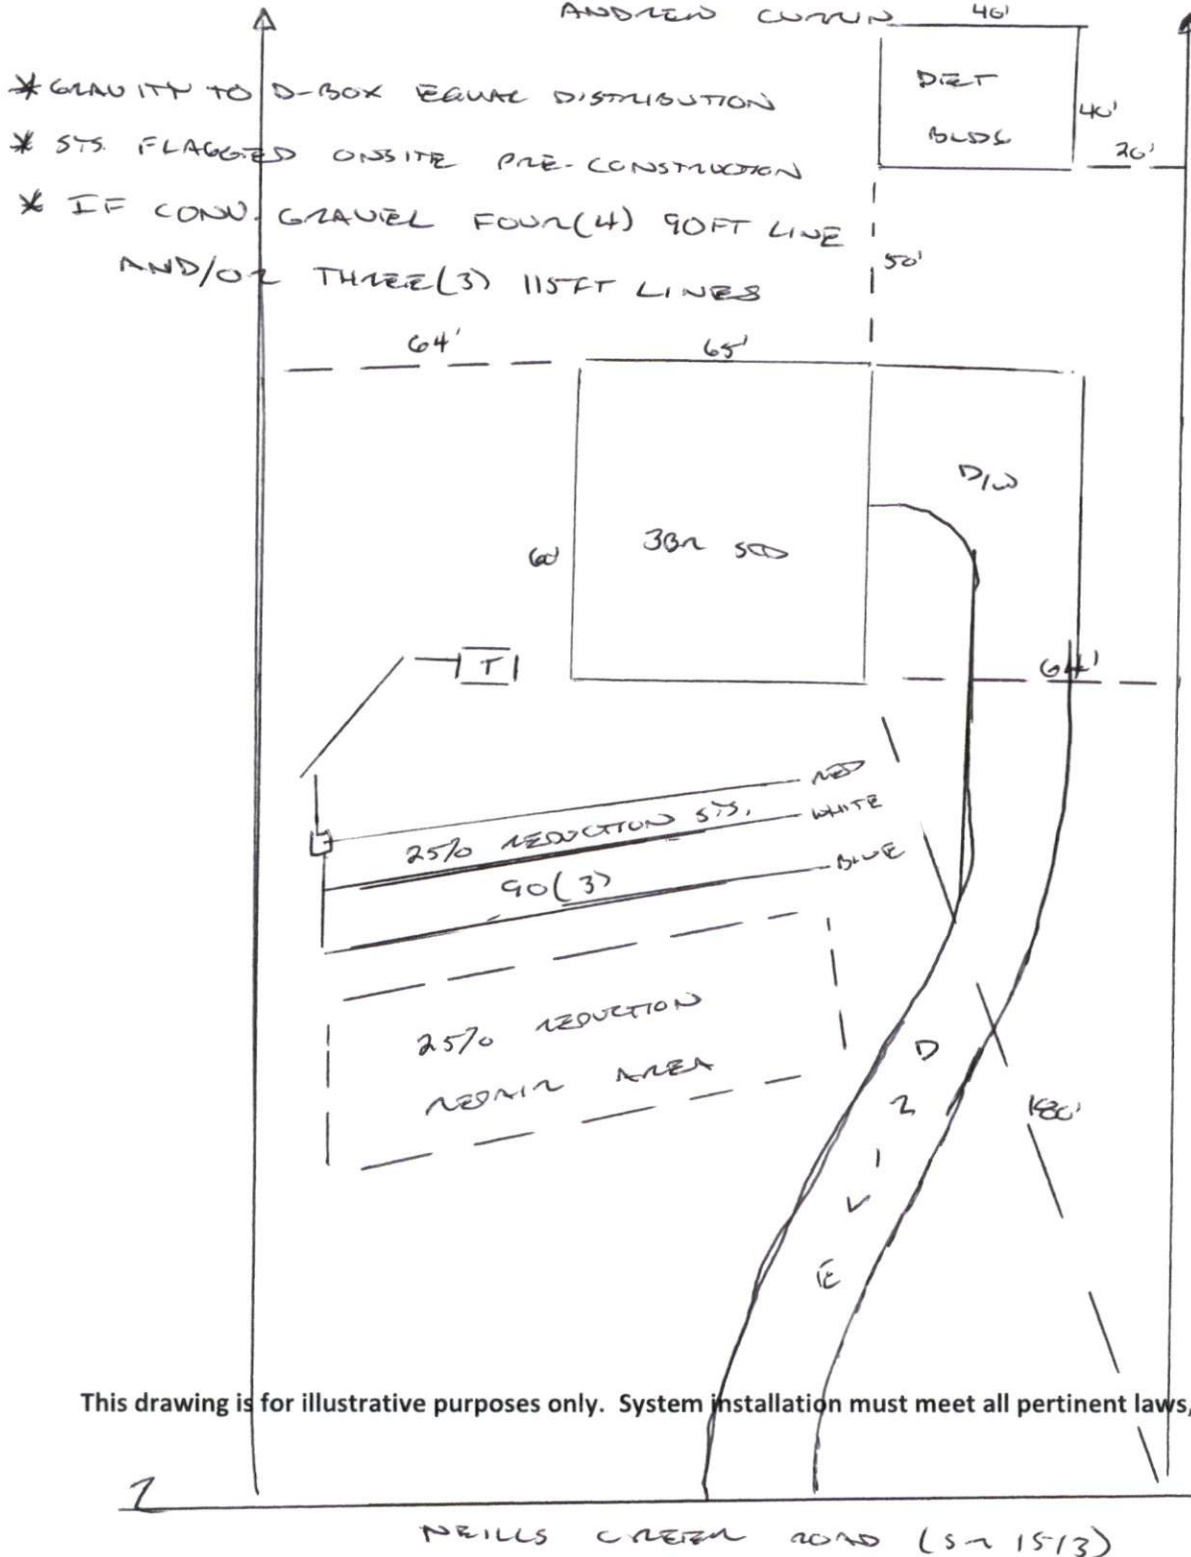 ANDREW CURRIN
40'
* GRAVITY TO D-BOX EQUAL DISTRIBUTION
DET
BLDG
40'
* SYS. FLAGGED ONSITE PRE-CONSTRUCTION
20'
* IF CONV. GRAVEL FOUR(4) 90FT LINE
AND/OR THREE(3) 115FT LINES
50'
64'
65'
D/W
60'
3BR SFD
T
64'
RED
25% REDUCTION SYS.
WHITE
90(3)
BLUE
25% REDUCTION
REPAIR AREA
DRIVE
180'
This drawing is for illustrative purposes only. System installation must meet all pertinent laws,
NEILLS CREEK ROAD (SR 1513)